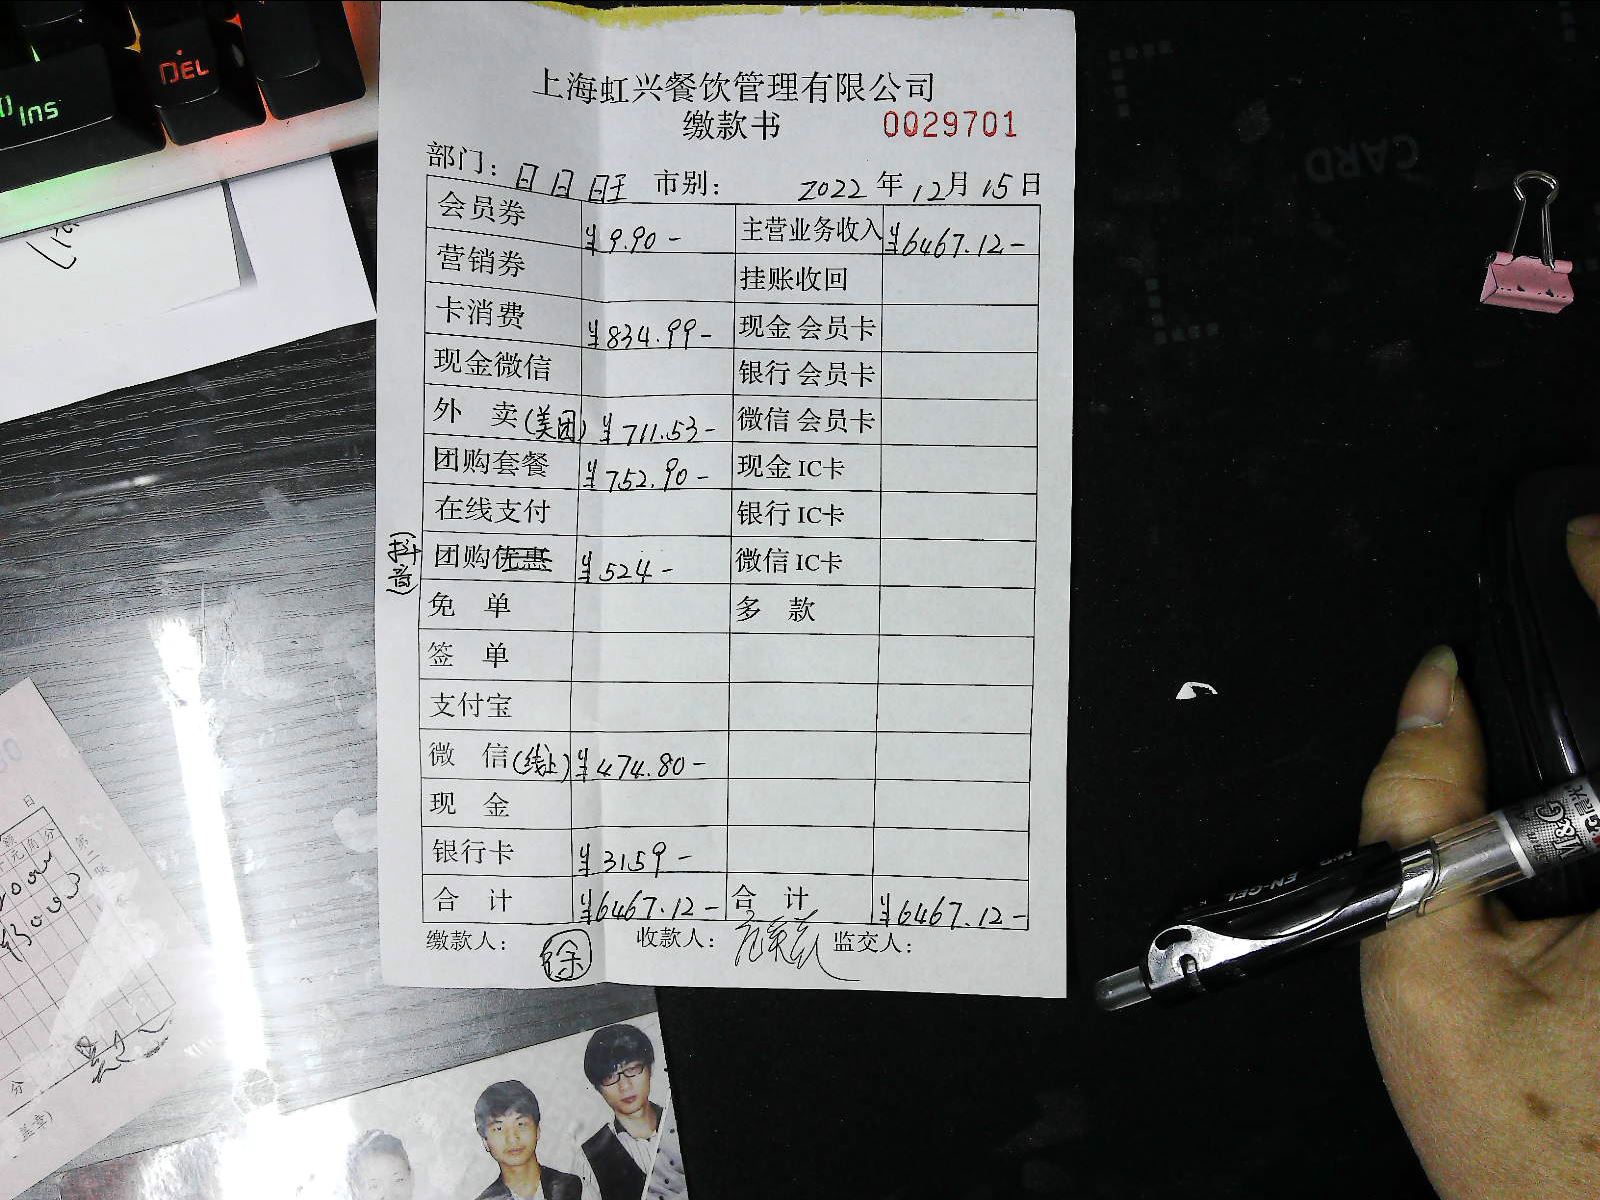 DEL
Ins
上海虹兴餐饮管理有限公司
缴款书 0029701
部门: 日日旺 市别: 2022年12月15日
会员券 ¥9.90- 主营业务收入 ¥6467.12-
营销券 挂账收回
卡消费 ¥834.99- 现金会员卡
现金微信 银行会员卡
外 卖(美团) ¥711.53- 微信会员卡
团购套餐 ¥752.90- 现金IC卡
在线支付 银行IC卡
(抖音) 团购优惠 ¥524- 微信IC卡
免 单 多 款
签 单
支付宝
微 信(线上) ¥474.80-
现 金
银行卡 ¥3159-
合 计 ¥6467.12- 合 计 ¥6467.12-
缴款人: 徐 收款人: 监交人:
CARD
M&G 晨光
EN-GEL
日
元角分
第二联
分
盖章)